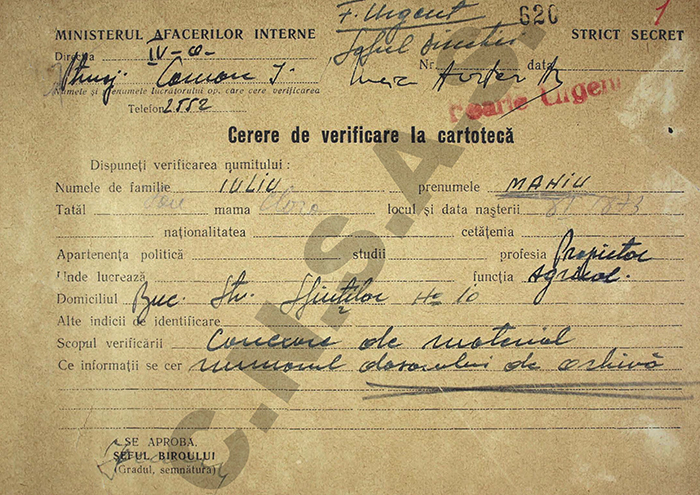 F. Urgent 620 1
MINISTERUL AFACERILOR INTERNE STRICT SECRET
Direcția IV-a Șeful Direcției Nr. data
Coman I.
Numele și prenumele lucrătorului op. care cere verificarea
Foarte Urgent
Telefon 2552
Cerere de verificare la cartotecă
Dispuneți verificarea numitului :
Numele de familie IULIU prenumele MANIU
Tatăl Ioan mama Clara locul și data nașterii 1873
naționalitatea cetățenia
Apartenența politică studii profesia Propietar
Unde lucrează funcția Agricol.
Domiciliul Buc. Str. Sfinților No 10
Alte indicii de identificare
Scopul verificării de material
Ce informații se cer numărul dosarului de arhivă
SE APROBA.
ȘEFUL BIROULUI
(Gradul, semnătura)
C.N.S.A.S.